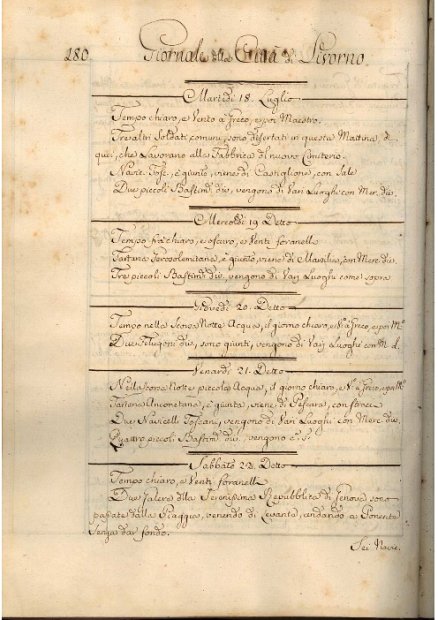 180
Giornale della Città di Livorno.
Martedì 18. Luglio
Tempo chiaro, e Vento à Greco, e poi Maestro.
Tre altri Soldati comuni, sono disertati in questa Mattina, di
quei, che Lavorano alle Fabbrica del nuovo Cimiterio.
Nave Tosc. è giunto, viene di Castiglione, con Sale
Due piccoli Bastim. div. vengono di Vari Luoghi con Mer. div.
Mercoledì 19. Detto
Tempo frà chiaro, e oscuro, e Venti foranelli
Tartana Gerosolimitana, è giunto, viene di Marsilia, con Merc. div.
Tre piccoli Bastim. div. vengono di Varj Luoghi come sopra
Giovedì 20. Detto
Tempo nella scorsa Notte Acqua, il giorno chiaro, e V. à Greco, e poi M.
Due Felugoni div. sono giunti, vengono di Varij Luoghi con M. d.
Venardì 21. Detto
Nella scorsa Notte piccola Acqua, il giorno chiaro, e V. à Greco, e poi M.
Tartana Anconetana, è giunta, viene di Pescara, con
Due Navicelli Toscani, vengono di Vari Luoghi con Merc. div.
Quattro piccoli Bastim. div. vengono c. s.
Sabbato 22. Detto
Tempo chiaro, e Venti foranelli
Due Galere della Serenissima Repubblica di Genova sono
passate dalla Piaggia, venendo di Levante, andando à Ponente
Senza dar fondo.
Sei Navi.